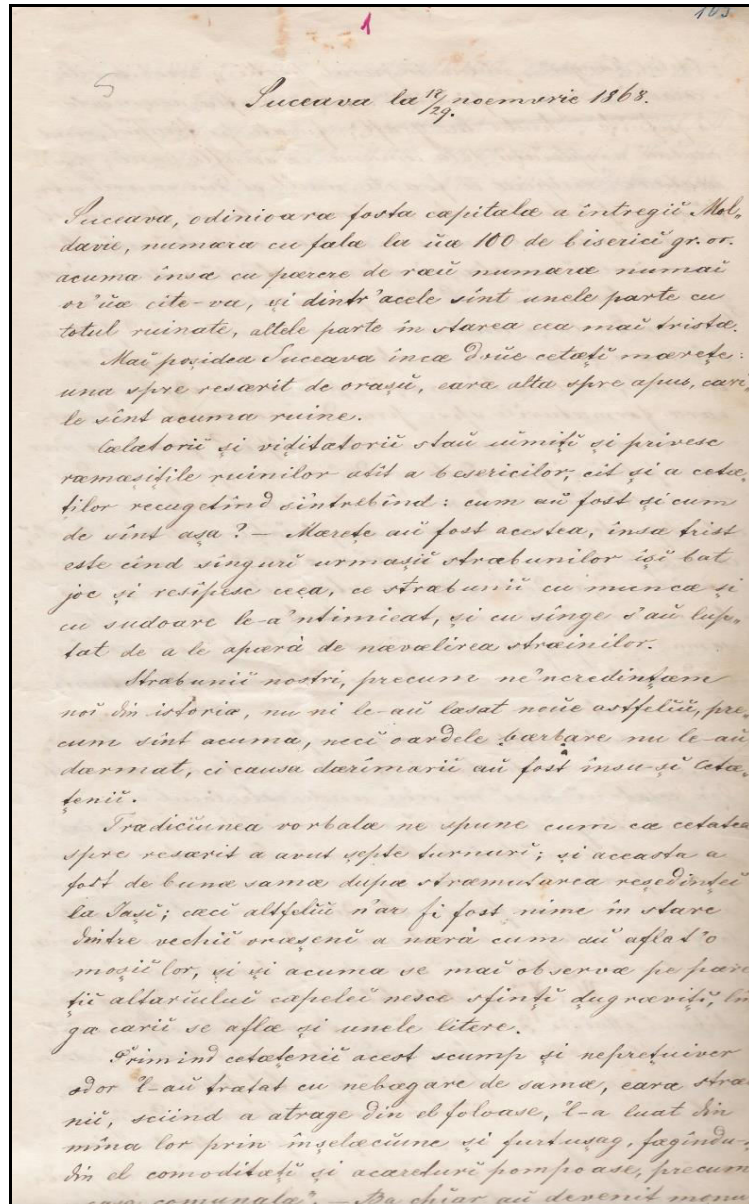 1
103
5
Suceava la 17/29. noemvrie 1868.
Suceava, odinioaræ fosta capitalæ a întregiĭ Mol„
davie, numæra cu falæ la ŭæ 100 de bisericĭ gr. or.
acuma însæ cu pærere de ræŭ numæræ numaĭ
vr'ŭæ cîte-va, și dintr'acele sînt unele parte cu
totul ruinate, altele parte în starea cea maĭ tristæ.
Maĭ posidea Suceava încæ douĕ cetæțĭ mærețe:
una spre resærit de orașŭ, earæ alta spre apus, cari„
le sînt acuma ruine.
Cælætoriĭ și viditatoriĭ staŭ uimițĭ și privesc
ræmæșițile ruinilor atît a besericilor, cît și a cetæ„
ților recugetînd s'întrebînd: cum aŭ fost și cum
de sînt așa? — Mærețe aŭ fost acestea, însæ trist
este cînd singurĭ urmașiĭ stræbunilor îșĭ bat
joc și resipesc ceea, ce stræbuniĭ cu muncæ și
cu sudoare le-a'ntimieat, și cu sînge s'aŭ lup„
tat de a le apærà de nævælirea stræinilor.
Stræbuniĭ nostri, precum ne'ncredințæm
noĭ din istoriæ, nu ni le-aŭ læsat nouĕ astfeliŭ, pre„
cum sînt acuma, necĭ oardele bærbare nu le-aŭ
dærmat, ci causa dærîmæriĭ aŭ fost însu-șĭ cetæ„
țeniĭ.
Tradicĭunea vorbalæ ne spune cum cæ cetatea
spre resærit a avut șepte turnurĭ; și aceasta a
fost de bunæ samæ dupæ stræmutarea reședințeĭ
la Iașĭ; cæcĭ altfeliŭ n'ar fi fost nime în stare
dintre vechiĭ orașenĭ a nærà cum aŭ aflat'o
moșiĭ lor, și și acuma se maĭ observæ pe pære„
țiĭ altariuluĭ capeleĭ nesce sfințĭ zugrævițĭ, lîn
ga cariĭ se aflæ și unele litere.
Primind cetæțeniĭ acest scump și neprețuiver
odor 'l-aŭ tratat cu nebægare de samæ, earæ stræ„
niĭ, sciind a atrage din el foloase, 'l-a luat din
mîna lor prin înșelæcĭune și furtușag, fægîndu-șĭ
din el comoditæțĭ și acareturĭ pompoase, precum
casa comunalæ". — Ba chiar aŭ devenit monu